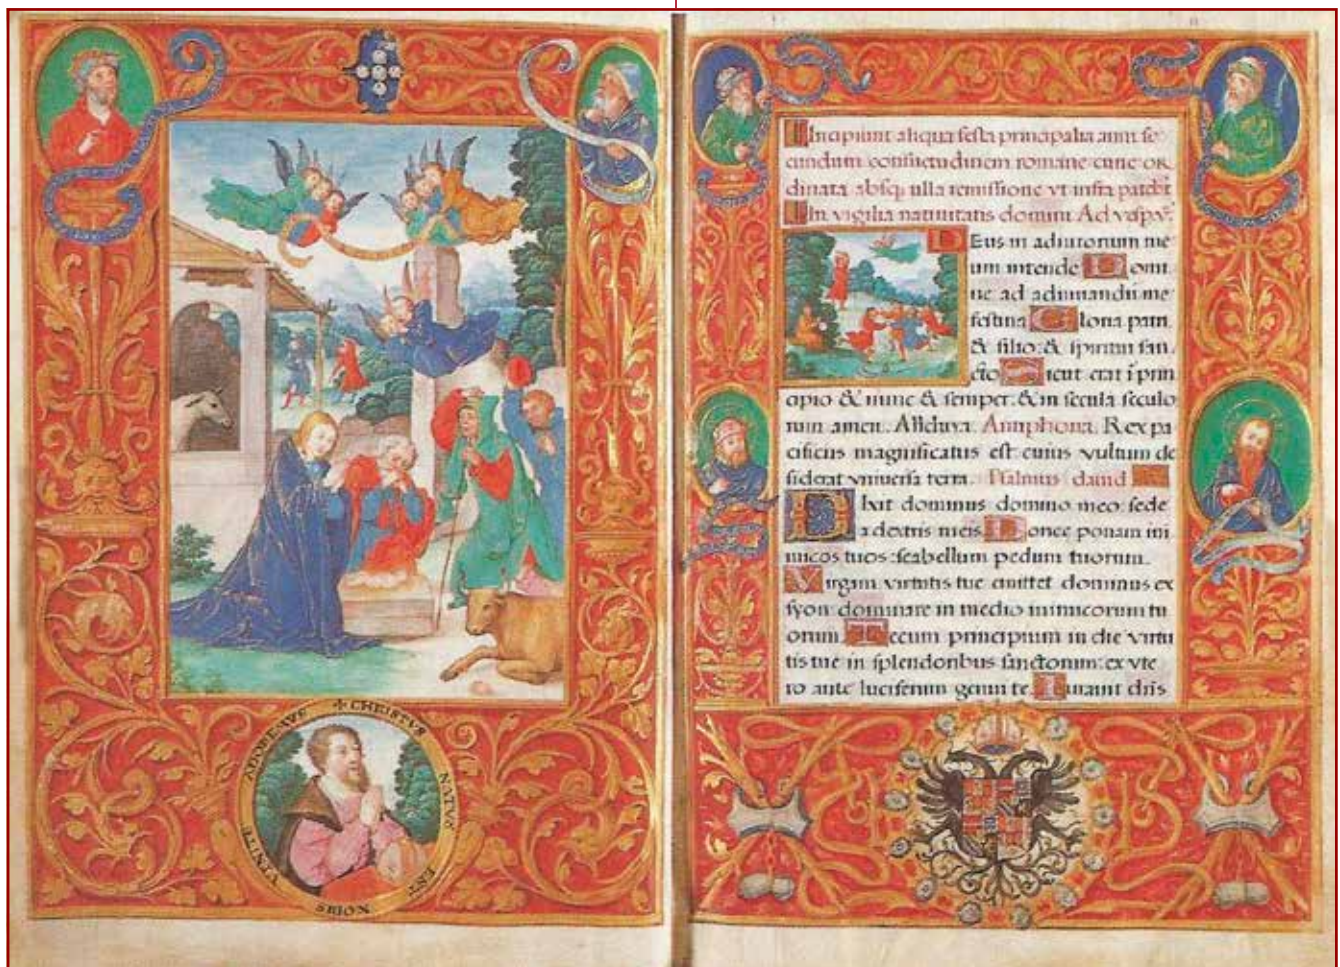 ✠ CHRISTVS NATVS EST NOBIS VENITE ADOREMVS
Incipiunt aliqua festa principalia anni se
cundum consuetudinem romane curie or
dinata absq; ulla remissione vt infra patebit
In vigilia natiuitatis domini Ad vesp
DEus in adiutorium me
um intende Domi
ne ad adiuuandū me
festina Gloria patri
& filio: & spiritui san
cto Sicut erat ī prin
cipio & nunc & semper: & in secula seculo
rum amen. Alleluya. Antiphona. Rex pa
cificus magnificatus est cuius vultum de
siderat vniuersa terra. Psalmus dauid
DIxit dominus domino meo: sede
a dextris meis Donec ponam ini
micos tuos: scabellum pedum tuorum.
Virgam virtutis tue emittet dominus ex
syon: dominare in medio inimicorum tu
orum Tecum principium in die virtu
tis tue in splendoribus sanctorum: ex vte
ro ante luciferum genui te. Iurauit dn̄s